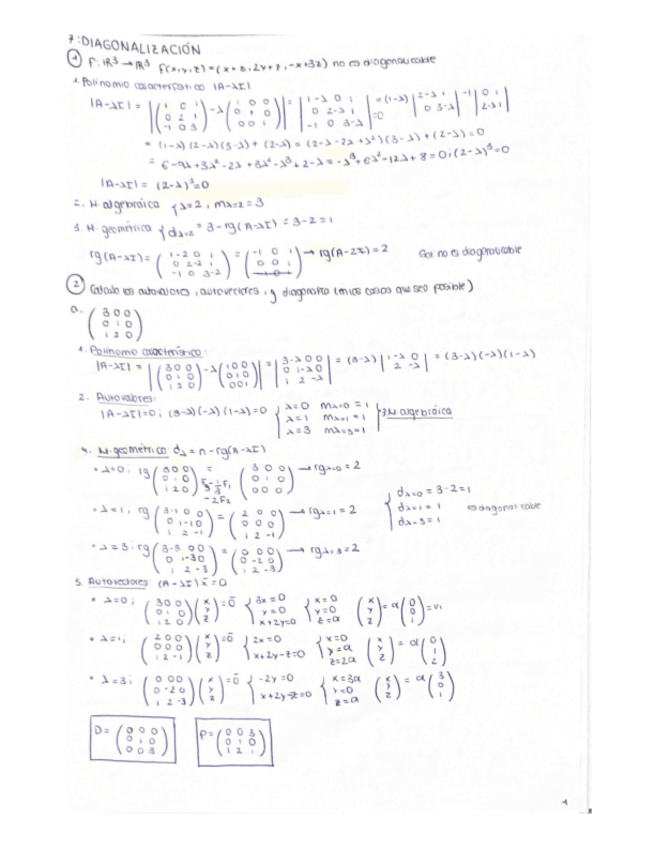 7: DIAGONALIZACIÓN
① f: ℝ³ → ℝ³ f(x,y,z) = (x+z, 2y+z, -x+3z) no es diagonalizable
1. Polinomio característico |A-λI|
|A-λI| = |(1 0 1; 0 2 1; -1 0 3) - λ(1 0 0; 0 1 0; 0 0 1)| = |1-λ 0 1; 0 2-λ 1; -1 0 3-λ| = (1-λ) |2-λ 1; 0 3-λ| -1 |0 1; 2-λ 1| = 0
= (1-λ)(2-λ)(3-λ) + (2-λ) = (2-λ-2λ+λ²)(3-λ) + (2-λ) = 0
= 6-9λ+3λ²-2λ+3λ²-λ³+2-λ = -λ³+6λ²-12λ+8 = 0; (2-λ)³ = 0
|A-λI| = (2-λ)³ = 0
2. M. algebráica { λ=2, mλ=2 = 3
3. M. geométrica { dλ=2 = 3-rg(A-λI) = 3-2 = 1
rg(A-λI) = (1-2 0 1; 0 2-2 1; -1 0 3-2) = (-1 0 1; 0 0 1; -1 0 1) → rg(A-2I) = 2 no es diagonalizable
② Calcula los autovalores, autovectores, y diagonaliza (en los casos que sea posible)
a. (3 0 0; 0 1 0; 1 2 0)
1. Polinomio característico:
|A-λI| = |(3 0 0; 0 1 0; 1 2 0) - λ(1 0 0; 0 1 0; 0 0 1)| = |3-λ 0 0; 0 1-λ 0; 1 2 -λ| = (3-λ) |1-λ 0; 2 -λ| = (3-λ)(-λ)(1-λ)
2. Autovalores:
|A-λI| = 0; (3-λ)(-λ)(1-λ) = 0 { λ=0 mλ=0 = 1; λ=1 mλ=1 = 1; λ=3 mλ=3 = 1 } 3. M algebráica
4. M. geométrica: dλ = n - rg(A-λI)
• λ=0; rg(3 0 0; 0 1 0; 1 2 0) = F3-⅓F1 -2F2 (3 0 0; 0 1 0; 0 0 0) → rgλ=0 = 2
• λ=1; rg(3-1 0 0; 0 1-1 0; 1 2 -1) = (2 0 0; 0 0 0; 1 2 -1) → rgλ=1 = 2 { dλ=0 = 3-2 = 1; dλ=1 = 1; dλ=3 = 1 es diagonalizable
• λ=3; rg(3-3 0 0; 0 1-3 0; 1 2 -3) = (0 0 0; 0 -2 0; 1 2 -3) → rgλ=3 = 2
5. Autovectores: (A-λI)x̄ = 0
• λ=0; (3 0 0; 0 1 0; 1 2 0)(x; y; z) = 0̄ { 3x=0; y=0; x+2y=0 { x=0; y=0; z=α (x; y; z) = α(0; 0; 1) = v₁
• λ=1; (2 0 0; 0 0 0; 1 2 -1)(x; y; z) = 0̄ { 2x=0; x+2y-z=0 { x=0; y=α; z=2α (x; y; z) = α(0; 1; 2)
• λ=3; (0 0 0; 0 -2 0; 1 2 -3)(x; y; z) = 0̄ { -2y=0; x+2y-z=0 { x=3α; y=0; z=α (x; y; z) = α(3; 0; 1)
D = (0 0 0; 0 1 0; 0 0 3) P = (0 0 3; 0 1 0; 1 2 1)
1